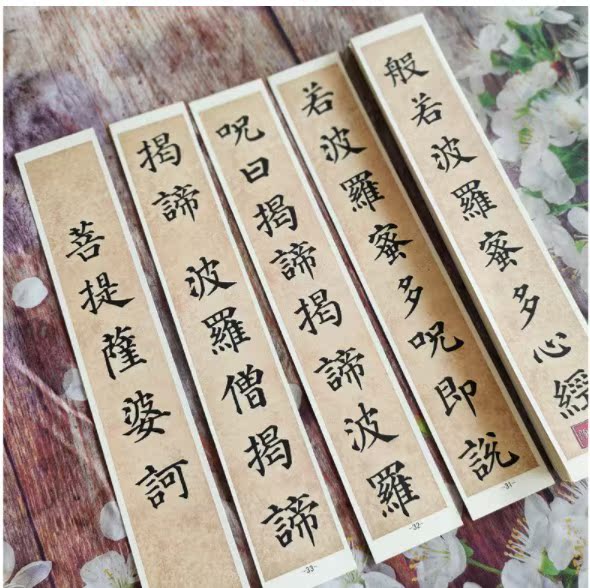 般若波羅蜜多心經
若波羅蜜多呪即說
-31-
呪曰揭諦揭諦波羅
-32-
揭諦 波羅僧揭諦
-33-
菩提薩婆訶